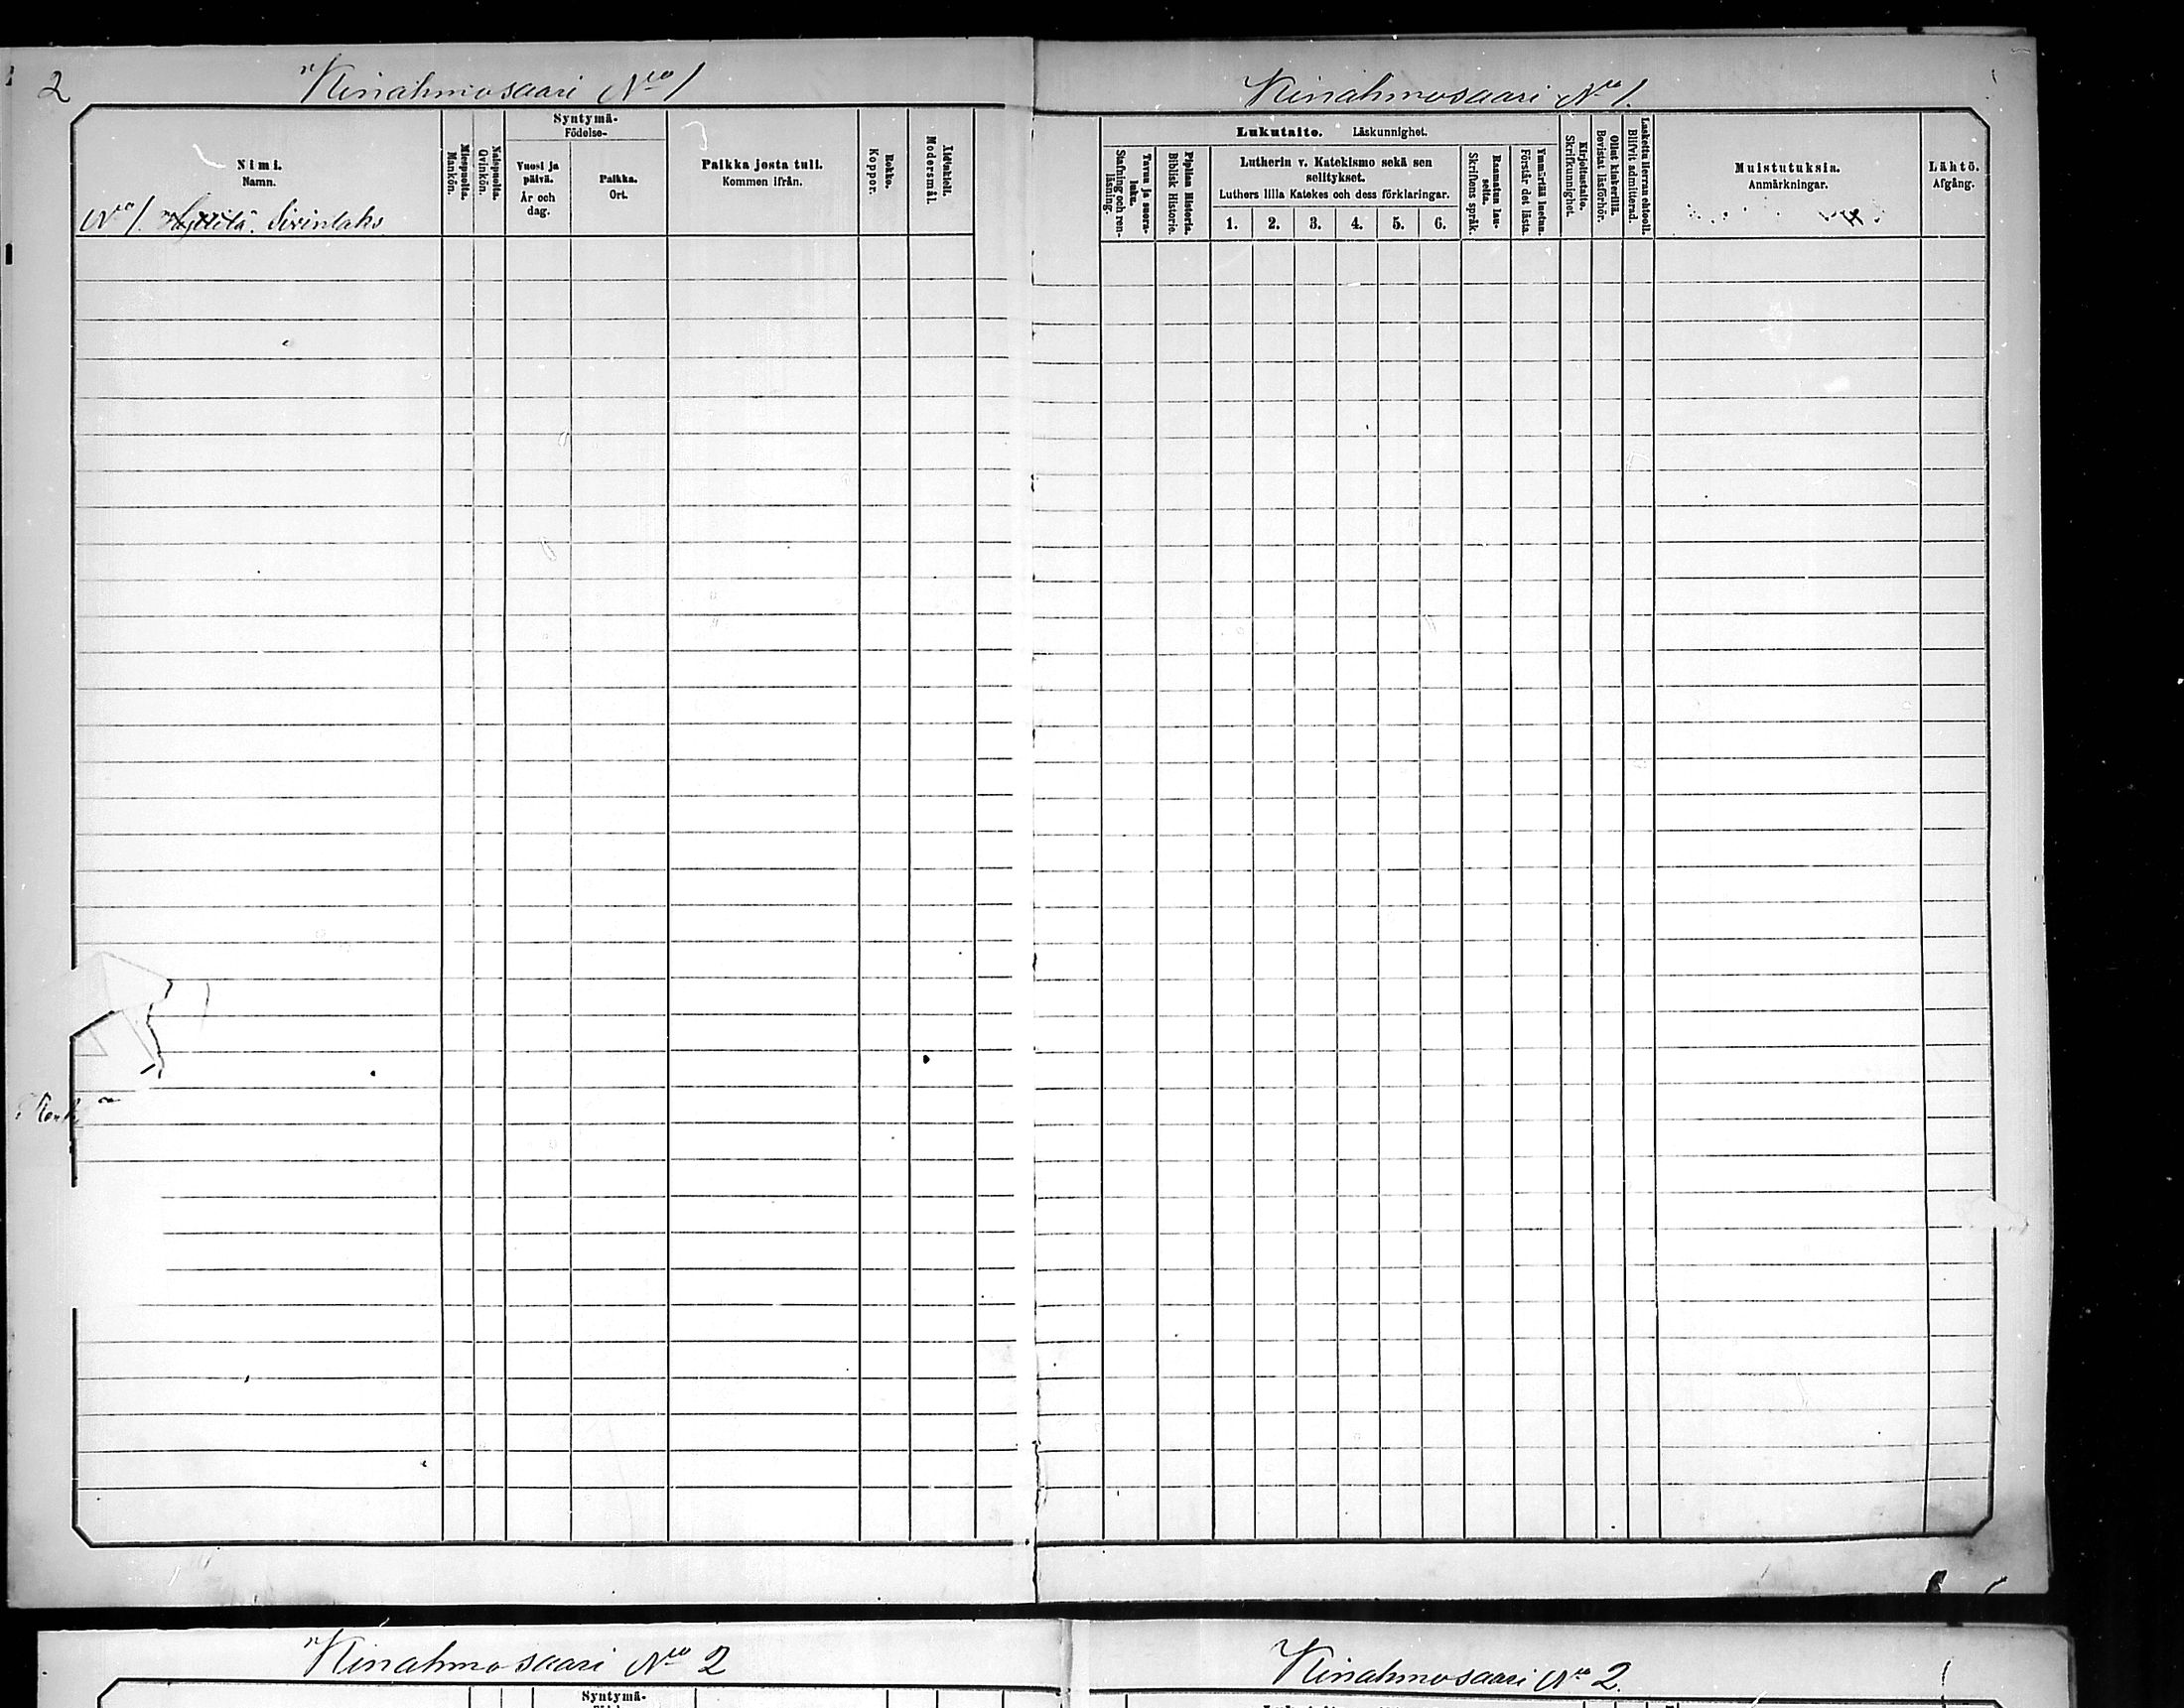 2
Kinahmosaari Nro 1
Kinahmosaari Nro 1.
Nimi.
Namn.
Miespuolta.
Mankön.
Naispuolta.
Qvinkön.
Syntymä-
Födelse-
Vuosi ja
päivä.
År och
dag.
Paikka.
Ort.
Paikka josta tuli.
Kommen ifrån.
Rokko.
Koppor.
Äidinkieli.
Modersmål.
Nro 1. Sirinlaks
Lukutaito. Läskunnighet.
Tavuu ja suora-
luku.
Stafning och ren-
läsning.
Piplian Historia.
Biblisk Historie.
Lutherin v. Katekismo sekä sen
selitykset.
Luthers lilla Katekes och dess förklaringar.
1. 2. 3. 4. 5. 6.
Raamatun lau-
seita.
Skriftens språk.
Ymmärtää luetun.
Förstår det lästa.
Kirjoitustaito.
Skrifkunnighet.
Ollut kinkerillä.
Bevistat läsförhör.
Laskettu Herran ehtooll.
Blifvit admitterad.
Muistutuksia.
Anmärkningar.
Lähtö.
Afgång.
Kinahmosaari Nro 2
Kinahmosaari Nro 2.
Syntymä-